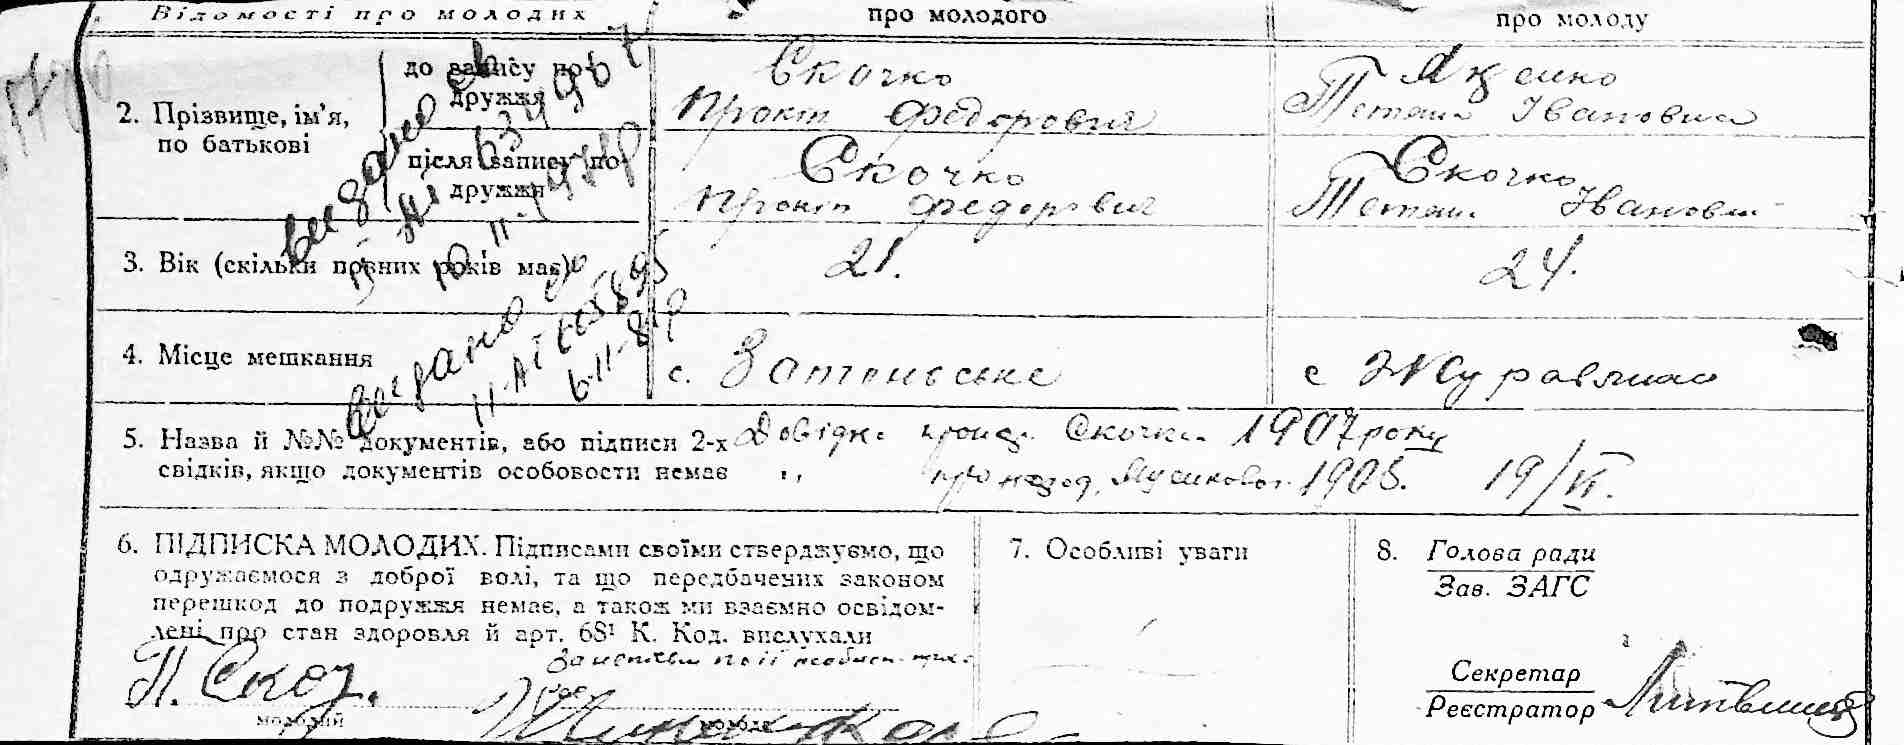 Відомості про молодих
про молодого
про молоду
2. Прізвище, ім'я,
по батькові
до запису по-
дружжя
Скочко
Прокіп Федорович
Яценко
Тетяна Івановна
після запису по-
дружжя
Скочко
Прокіп Федорович
Скочко
Тетяна Івановна
видано
3. Вік (скільки повних років має)
21.
24.
видано
6-11-81р
4. Місце мешкання
с.
с Журавлиха
5. Назва й №№ документів, або підписи 2-х
свідків, якщо документів особовости немає
Довідка Скочка 1907 року
,, 1905. 19/VI.
6. ПІДПИСКА МОЛОДИХ. Підписами своїми стверджуємо, що
одружаємося з доброї волі, та що передбачених законом
перешкод до подружжя немає, а також ми взаємно освідом-
лені про стан здоровля й арт. 68¹ К. Код. вислухали
П. Скоч.
молодий
молода
7. Особливі уваги
8. Голова ради
Зав. ЗАГС
Секретар
Реєстратор